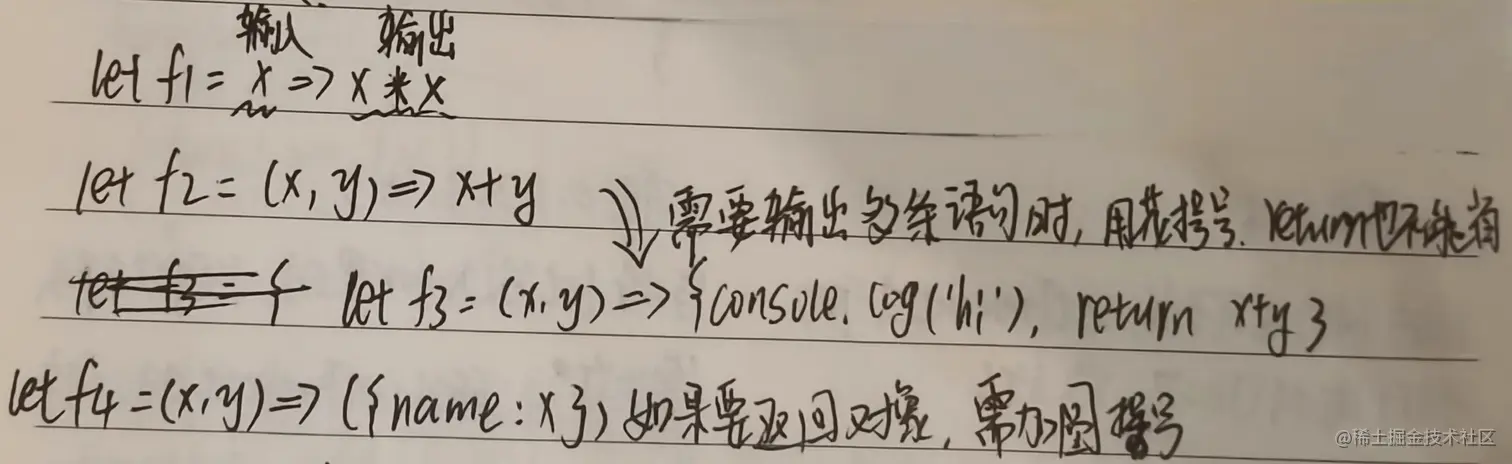 输入 输出
let f1 = x => x * x
let f2 = (x, y) => x+y
需要输出多条语句时, 用花括号. return也不能省
let f3 = { let f3 = (x, y) => {console.log('hi'), return x+y}
let f4 = (x, y) => ({name: x}) 如果要返回对象, 需加圆括号
@稀土掘金技术社区